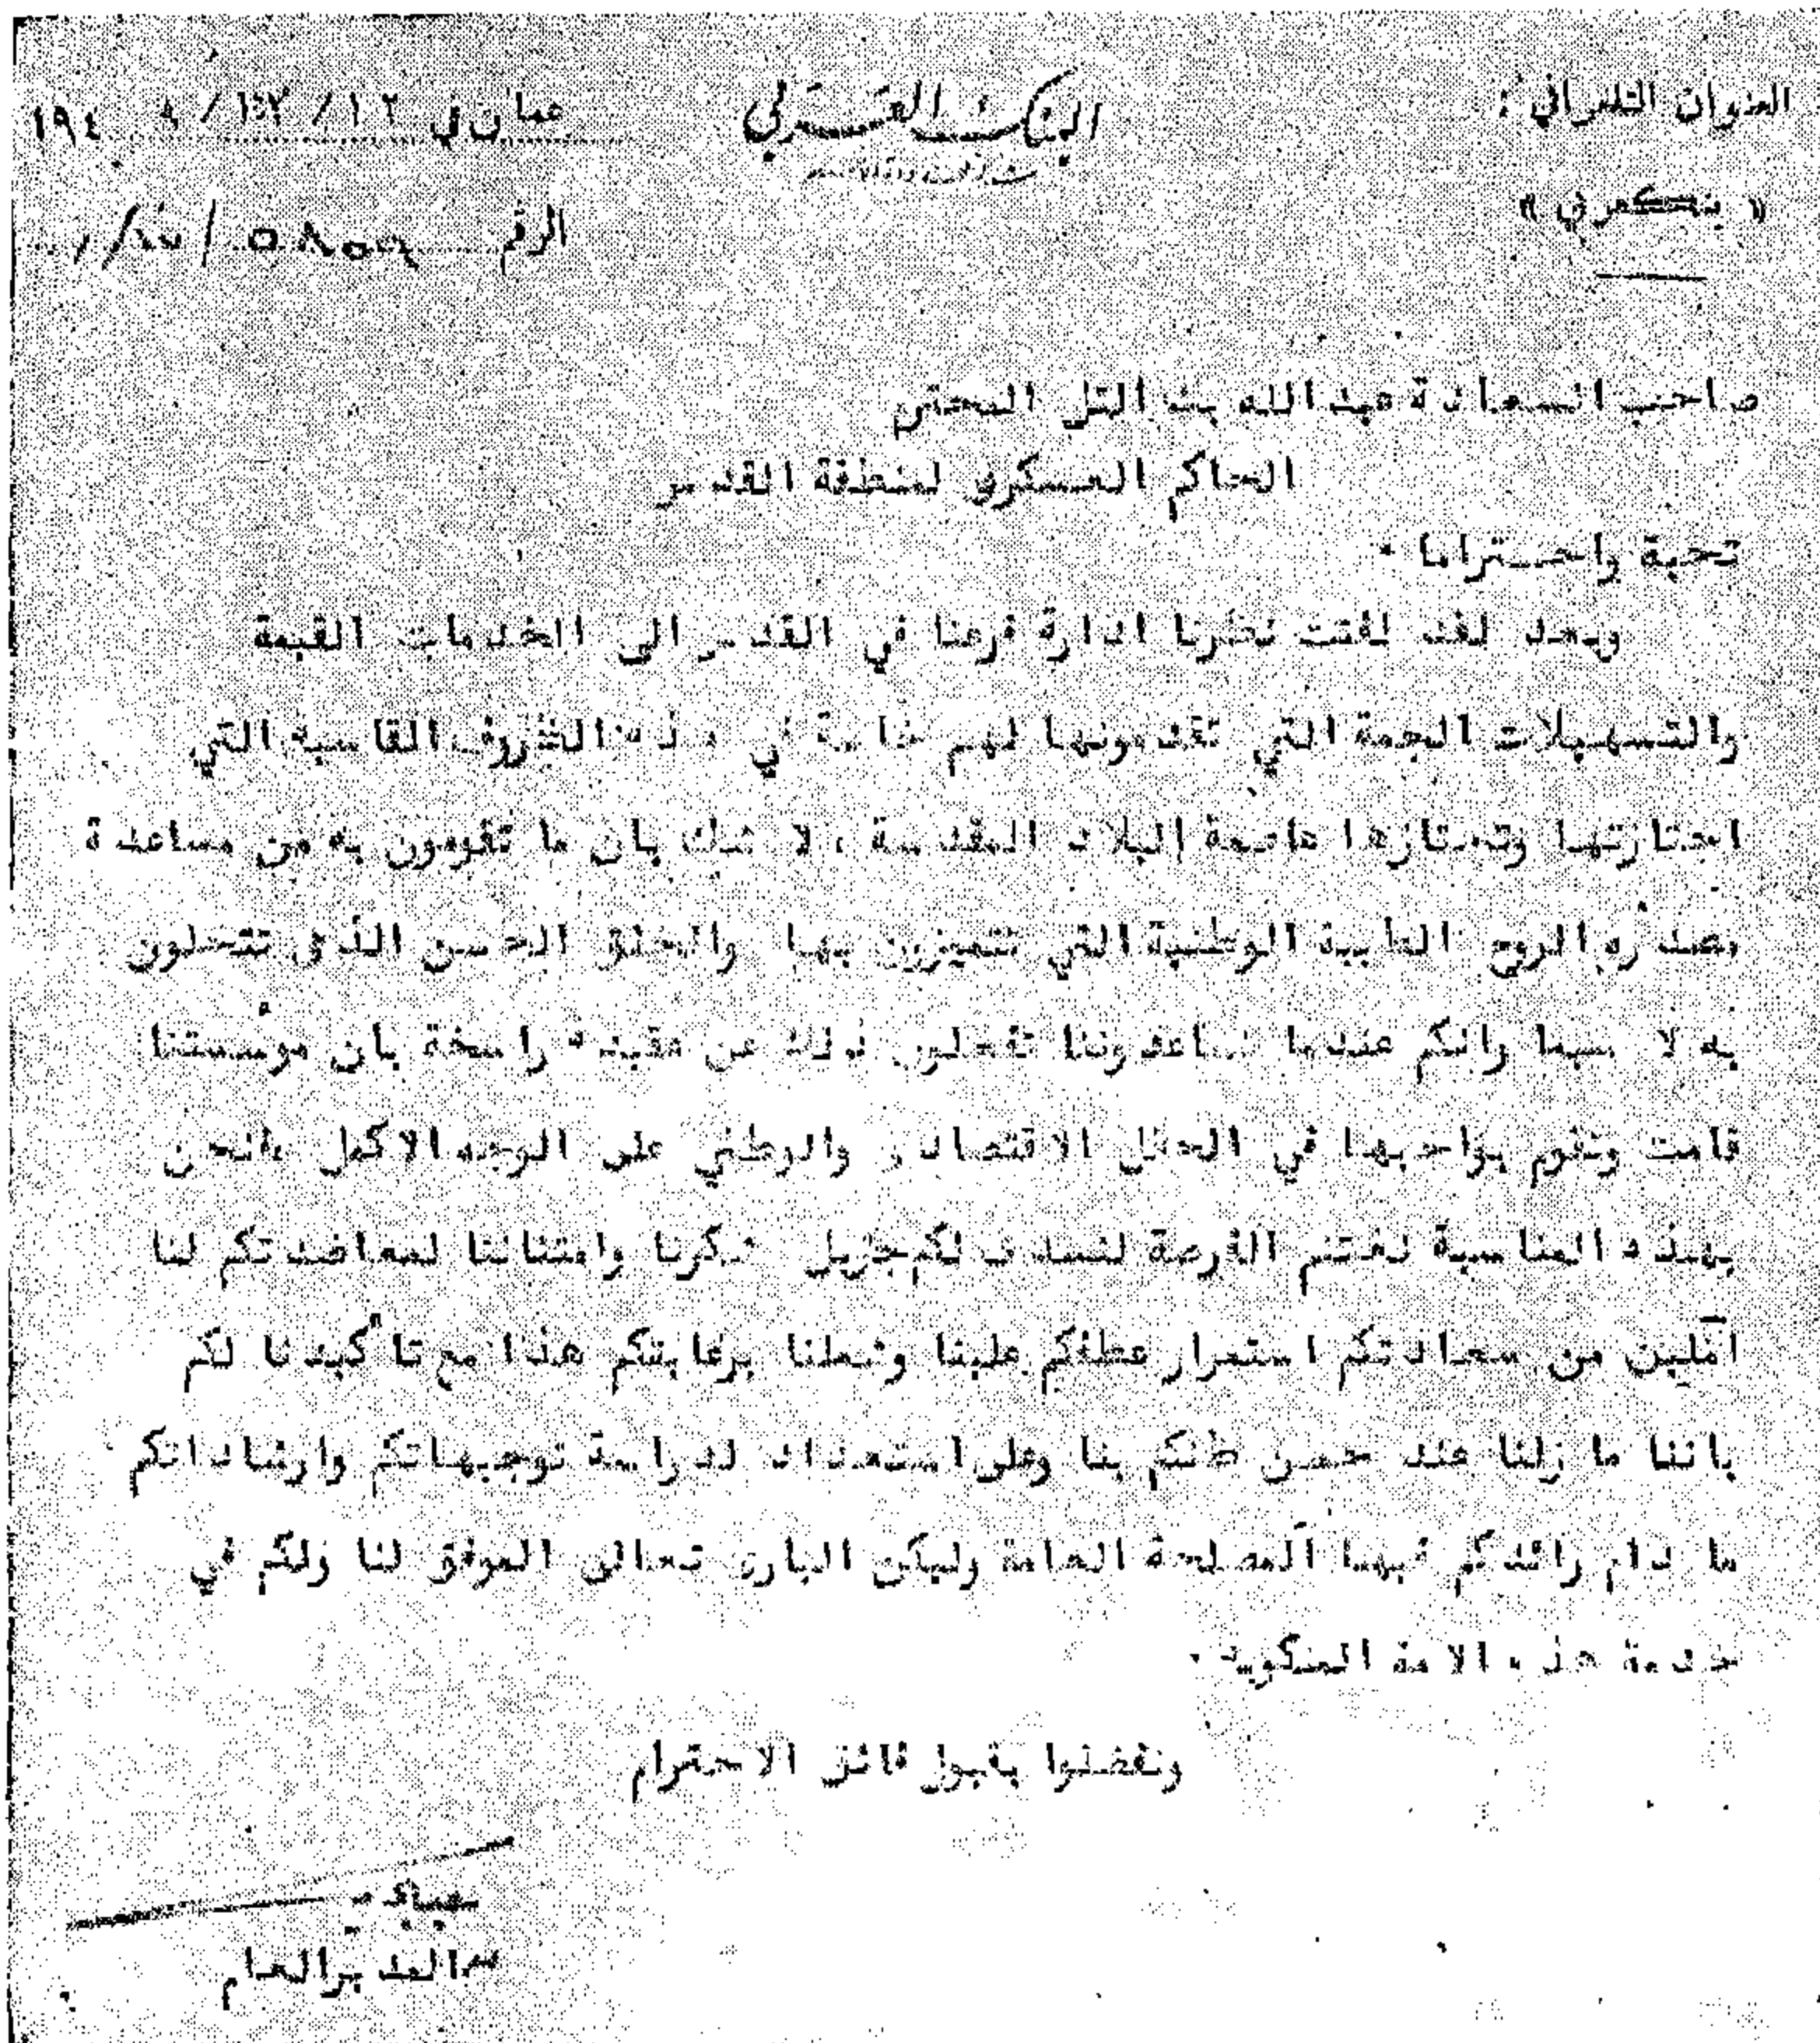 العنوان التلغرافي :
« بنكعربي »
البنك العربي
عمان في ١٩٤
الرقم
صاحب السعادة عبد الله بك التل المحترم
الحاكم العسكري لمنطقة القدس
تحية واحتراما .
وبعد لقد لفتت نظرنا ادارة فرعنا في القدس الى الخدمات القيمة
والتسهيلات الجمة التي تقدمونها لهم خاصة في هذه الظروف القاسية التي
اجتازتها وتجتازها عاصمة البلاد المقدسة ، لا شك بان ما تقومون به من مساعدة
مصدره الروح الوطنية التي تتميزون بها والخلق الحسن الذي تتحلون
به لا سيما وانكم عندما تساعدوننا تفعلون ذلك عن عقيدة راسخة بان مؤسستنا
قامت وتقوم بواجبها في الحقل الاقتصادي والوطني على الوجه الاكمل فنحن
بهذه المناسبة نغتنم الفرصة لنسدي لكم جزيل شكرنا وامتناننا لمعاضدتكم لنا
آملين من سعادتكم استمرار عطفكم علينا وشملنا برعايتكم هذا مع تأكيدنا لكم
باننا ما زلنا عند حسن ظنكم بنا وعلى استعداد لدراسة توجيهاتكم وارشاداتكم
ما دام رائدكم فيها المصلحة العامة وليكن الباري تعالى الموفق لنا ولكم في
خدمة هذه الامة المنكوبة .
وتفضلوا بقبول فائق الاحترام
المدير العام